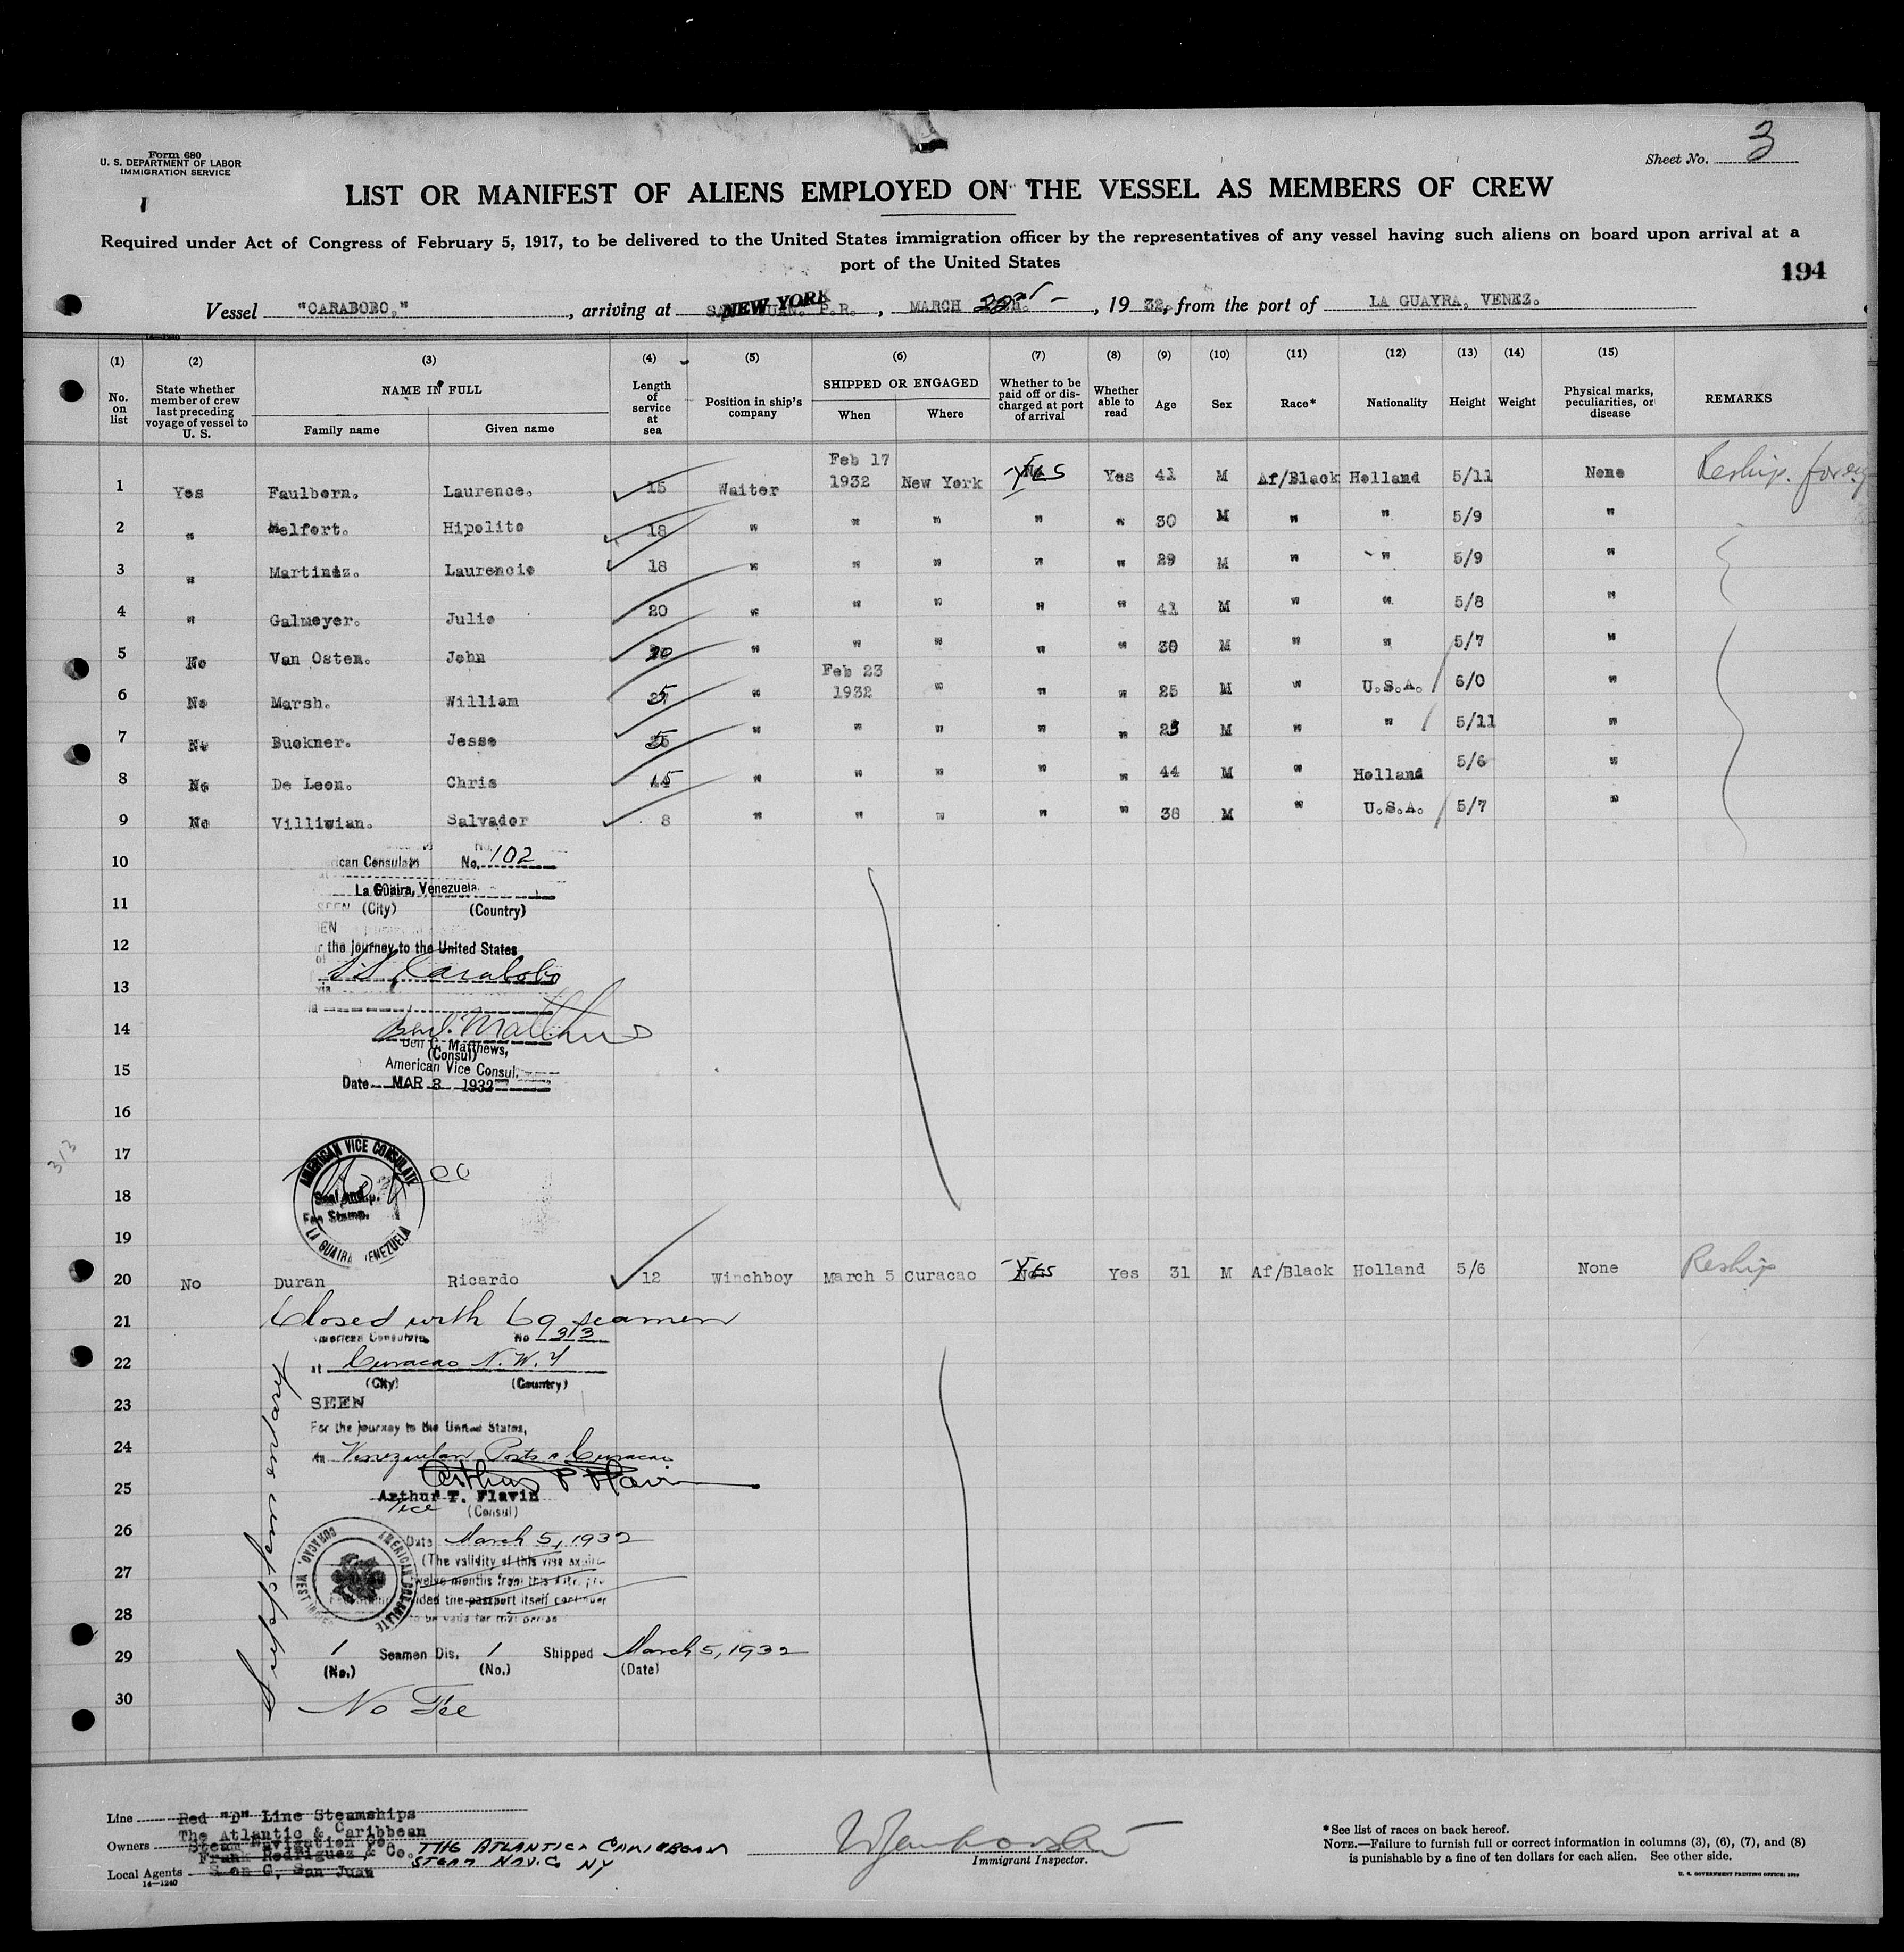 Form 680
U. S. DEPARTMENT OF LABOR
IMMIGRATION SERVICE
Sheet No. 3
LIST OR MANIFEST OF ALIENS EMPLOYED ON THE VESSEL AS MEMBERS OF CREW
Required under Act of Congress of February 5, 1917, to be delivered to the United States immigration officer by the representatives of any vessel having such aliens on board upon arrival at a
port of the United States
194
Vessel "CARABOBO," , arriving at NEW YORK , MARCH , 19 32, from the port of LA GUAYRA, VENEZ.
(1) (2) (3) (4) (5) (6) (7) (8) (9) (10) (11) (12) (13) (14) (15)
No. on list State whether member of crew last preceding voyage of vessel to U. S. NAME IN FULL Family name Given name Length of service at sea Position in ship's company SHIPPED OR ENGAGED When Where Whether to be paid off or discharged at port of arrival Whether able to read Age Sex Race* Nationality Height Weight Physical marks, peculiarities, or disease REMARKS
1 Yes Faulborn. Laurence. 15 Waiter Feb 17 1932 New York Yes Yes 41 M Af/Black Holland 5/11 None Reship.
2 " Melfort. Hipolito 18 " " " " " 30 M " " 5/9 "
3 " Martinez. Laurencio 18 " " " " " 29 M " " 5/9 "
4 " Galmeyer. Julio 20 " " " " " 41 M " " 5/8 "
5 No Van Osten. John " " " " " 30 M " " 5/7 "
6 No Marsh. William 5 " Feb 23 1932 " " " 25 M " U.S.A. 6/0 "
7 No Buckner. Jesse 5 " " " " " 25 M " " 5/11 "
8 No De Leon. Chris 15 " " " " " 44 M " Holland 5/6 "
9 No Villisian. Salvador 8 " " " " " 38 M " U.S.A. 5/7 "
10 rican Consulate No. 102
La Guaira, Venezuela
11 (City) (Country)
12 the journey to the United States
S.S. Carabobo
13 via
14 Ben C. Matthews
Ben C. Matthews,
(Consul)
15 American Vice Consul.
Date MAR 8 1932
16
17
AMERICAN VICE CONSULATE
LA GUAIRA VENEZUELA
No Fee
Fee Stamp.
313
18
19
20 No Duran Ricardo 12 Winchboy March 5 Curacao Yes Yes 31 M Af/Black Holland 5/6 None Reship
21 Closed with 69 seamen
American Consulate No 313
22 at Curacao N. W. I
(City) (Country)
23 SEEN
For the journey to the United States,
24 Venezuelan Ports & Curacao
25 Arthur T. Flavin
Vice (Consul)
26 Date March 5, 1932
(The validity of this visa expires
27 twelve months from this date, pro
vided the passport itself continues
28 to be valid for that period
AMERICAN CONSULATE
CURACAO, WEST INDIES
Supplementary
29 1 Seamen Dis. 1 Shipped March 5, 1932
(No.) (No.) (Date)
30 No Fee
Line Red "D" Line Steamships
Owners The Atlantic & Caribbean
Steam Navigation Co.
Frank Rodriguez & Co. THE ATLANTIC & CARIBBEAN
Local Agents San Juan STEAM NAV. Co NY
14—1240
Immigrant Inspector.
*See list of races on back hereof.
NOTE.—Failure to furnish full or correct information in columns (3), (6), (7), and (8)
is punishable by a fine of ten dollars for each alien. See other side.
U. S. GOVERNMENT PRINTING OFFICE: 1929